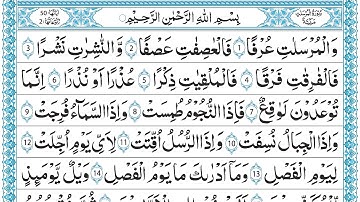 بِسْمِ اللّٰهِ الرَّحْمٰنِ الرَّحِيْمِ
وَالْمُرْسَلٰتِ عُرْفًا ۝1 فَالْعٰصِفٰتِ عَصْفًا ۝2 وَّالنّٰشِرٰتِ نَشْرًا ۝3
فَالْفٰرِقٰتِ فَرْقًا ۝4 فَالْمُلْقِيٰتِ ذِكْرًا ۝5 عُذْرًا اَوْ نُذْرًا ۝6 اِنَّمَا
تُوْعَدُوْنَ لَوَاقِعٌ ۝7 فَاِذَا النُّجُوْمُ طُمِسَتْ ۝8 وَاِذَا السَّمَآءُ فُرِجَتْ ۝9
وَاِذَا الْجِبَالُ نُسِفَتْ ۝10 وَاِذَا الرُّسُلُ اُقِّتَتْ ۝11 لِاَىِّ يَوْمٍ اُجِّلَتْ ۝12
لِيَوْمِ الْفَصْلِ ۝13 وَمَآ اَدْرٰىكَ مَا يَوْمُ الْفَصْلِ ۝14 وَيْلٌ يَّوْمَئِذٍ